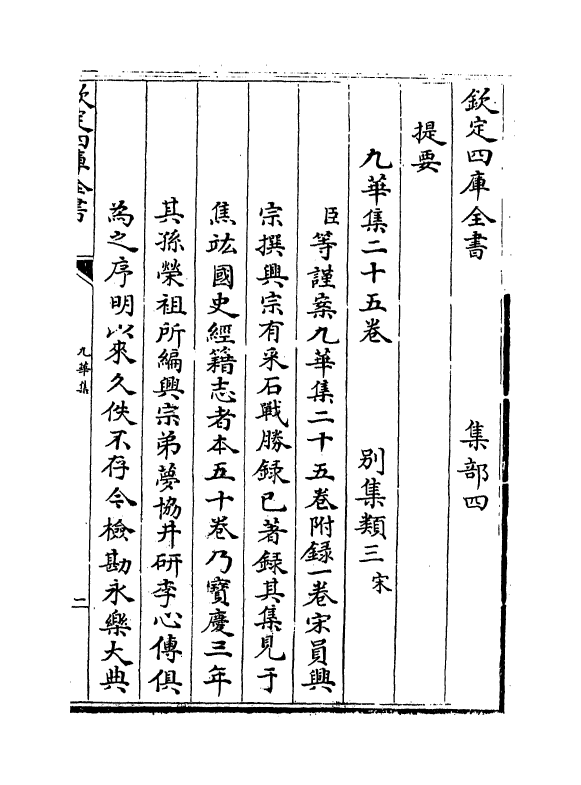 欽定四庫全書　集部四
提要
九華集二十五卷　別集類三宋
臣等謹案九華集二十五卷附錄一卷宋員興
宗撰興宗有采石戰勝錄已著錄其集見于
焦竑國史經籍志者本五十卷乃寶慶三年
其孫榮祖所編興宗弟夢協井研李心傳俱
為之序明以來久佚不存今檢勘永樂大典
欽定四庫全書
九華集
二